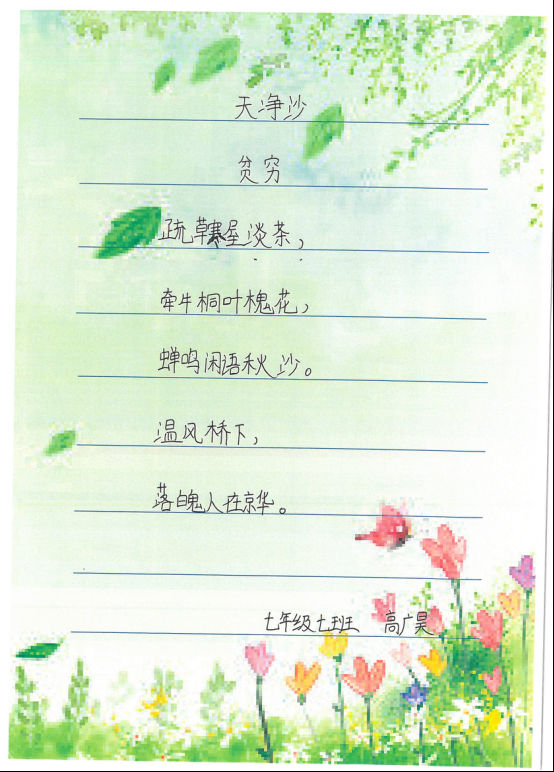 天净沙
贫穷
疏草寒屋淡茶，
牵牛桐叶槐花，
蝉鸣闲语秋沙。
温风桥下，
落白鬼人在京华。
七年级七班 高广昊